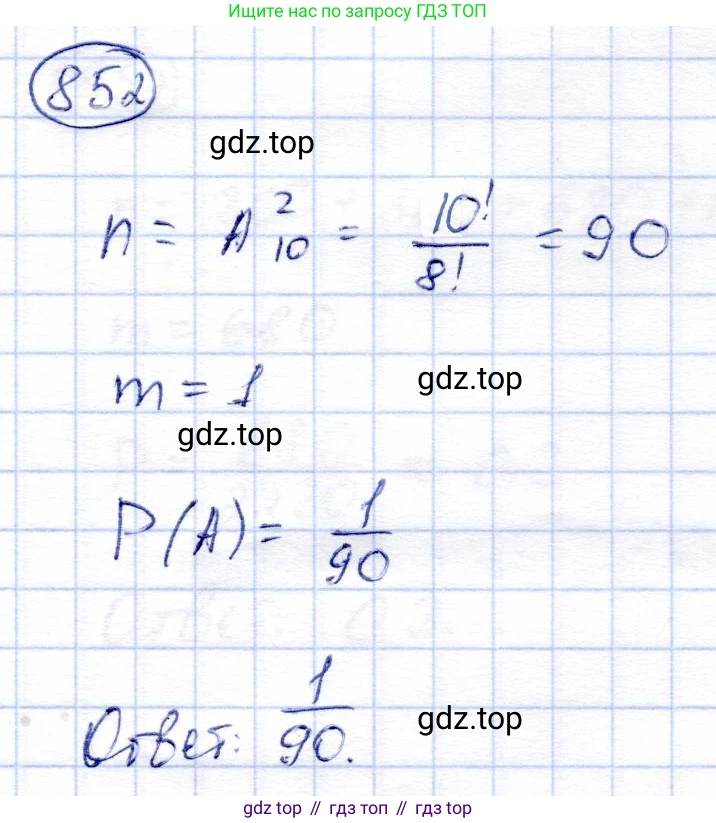 Ищите нас по запросу ГДЗ ТОП
852
gdz.top
n = A²₁₀ = 10!/8! = 90
m = 1
gdz.top
gdz.top
P(A) = 1/90
Ответ: 1/90.
gdz.top
gdz top // гдз топ // гдз top